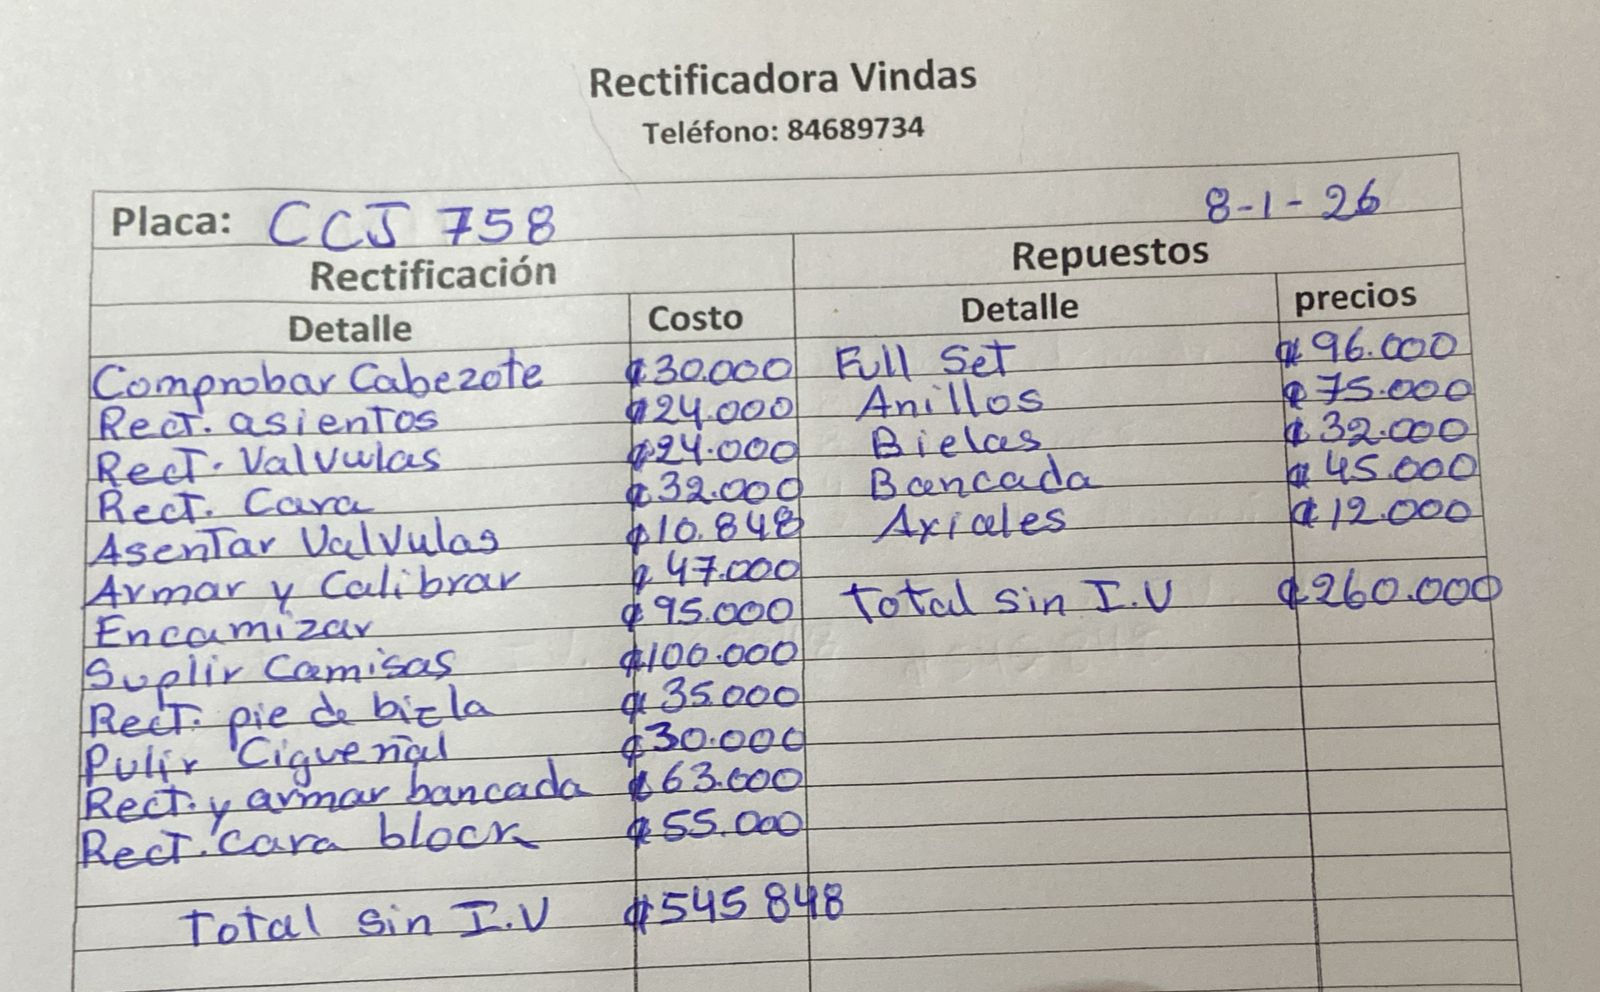 Rectificadora Vindas
Teléfono: 84689734
Placa: CCJ 758 8-1-26
Rectificación Repuestos
Detalle Costo Detalle precios
Comprobar Cabezote ₡30.000 Full Set ₡96.000
Rect. asientos ₡24.000 Anillos ₡75.000
Rect. Valvulas ₡24.000 Bielas ₡32.000
Rect. Cara ₡32.000 Bancada ₡45.000
Asentar Valvulas ₡10.848 Axiales ₡12.000
Armar y Calibrar ₡47.000
Encamizar ₡95.000 Total sin I.V ₡260.000
Suplir Camisas ₡100.000
Rect. pie de biela ₡35.000
Pulir Cigueñal ₡30.000
Rect. y armar bancada ₡63.000
Rect. Cara block ₡55.000
Total sin I.V ₡545 848